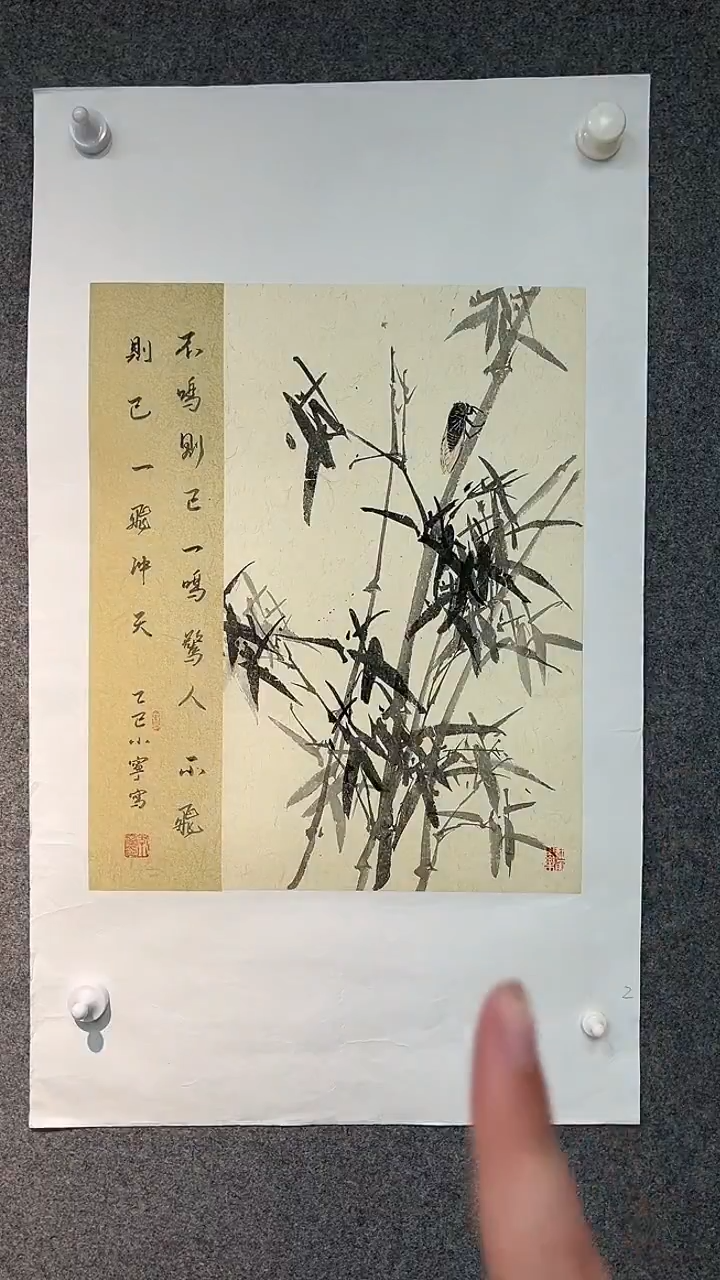 不鳴則已一鳴驚人不飛
則已一飛沖天
乙巳小寧寫
2